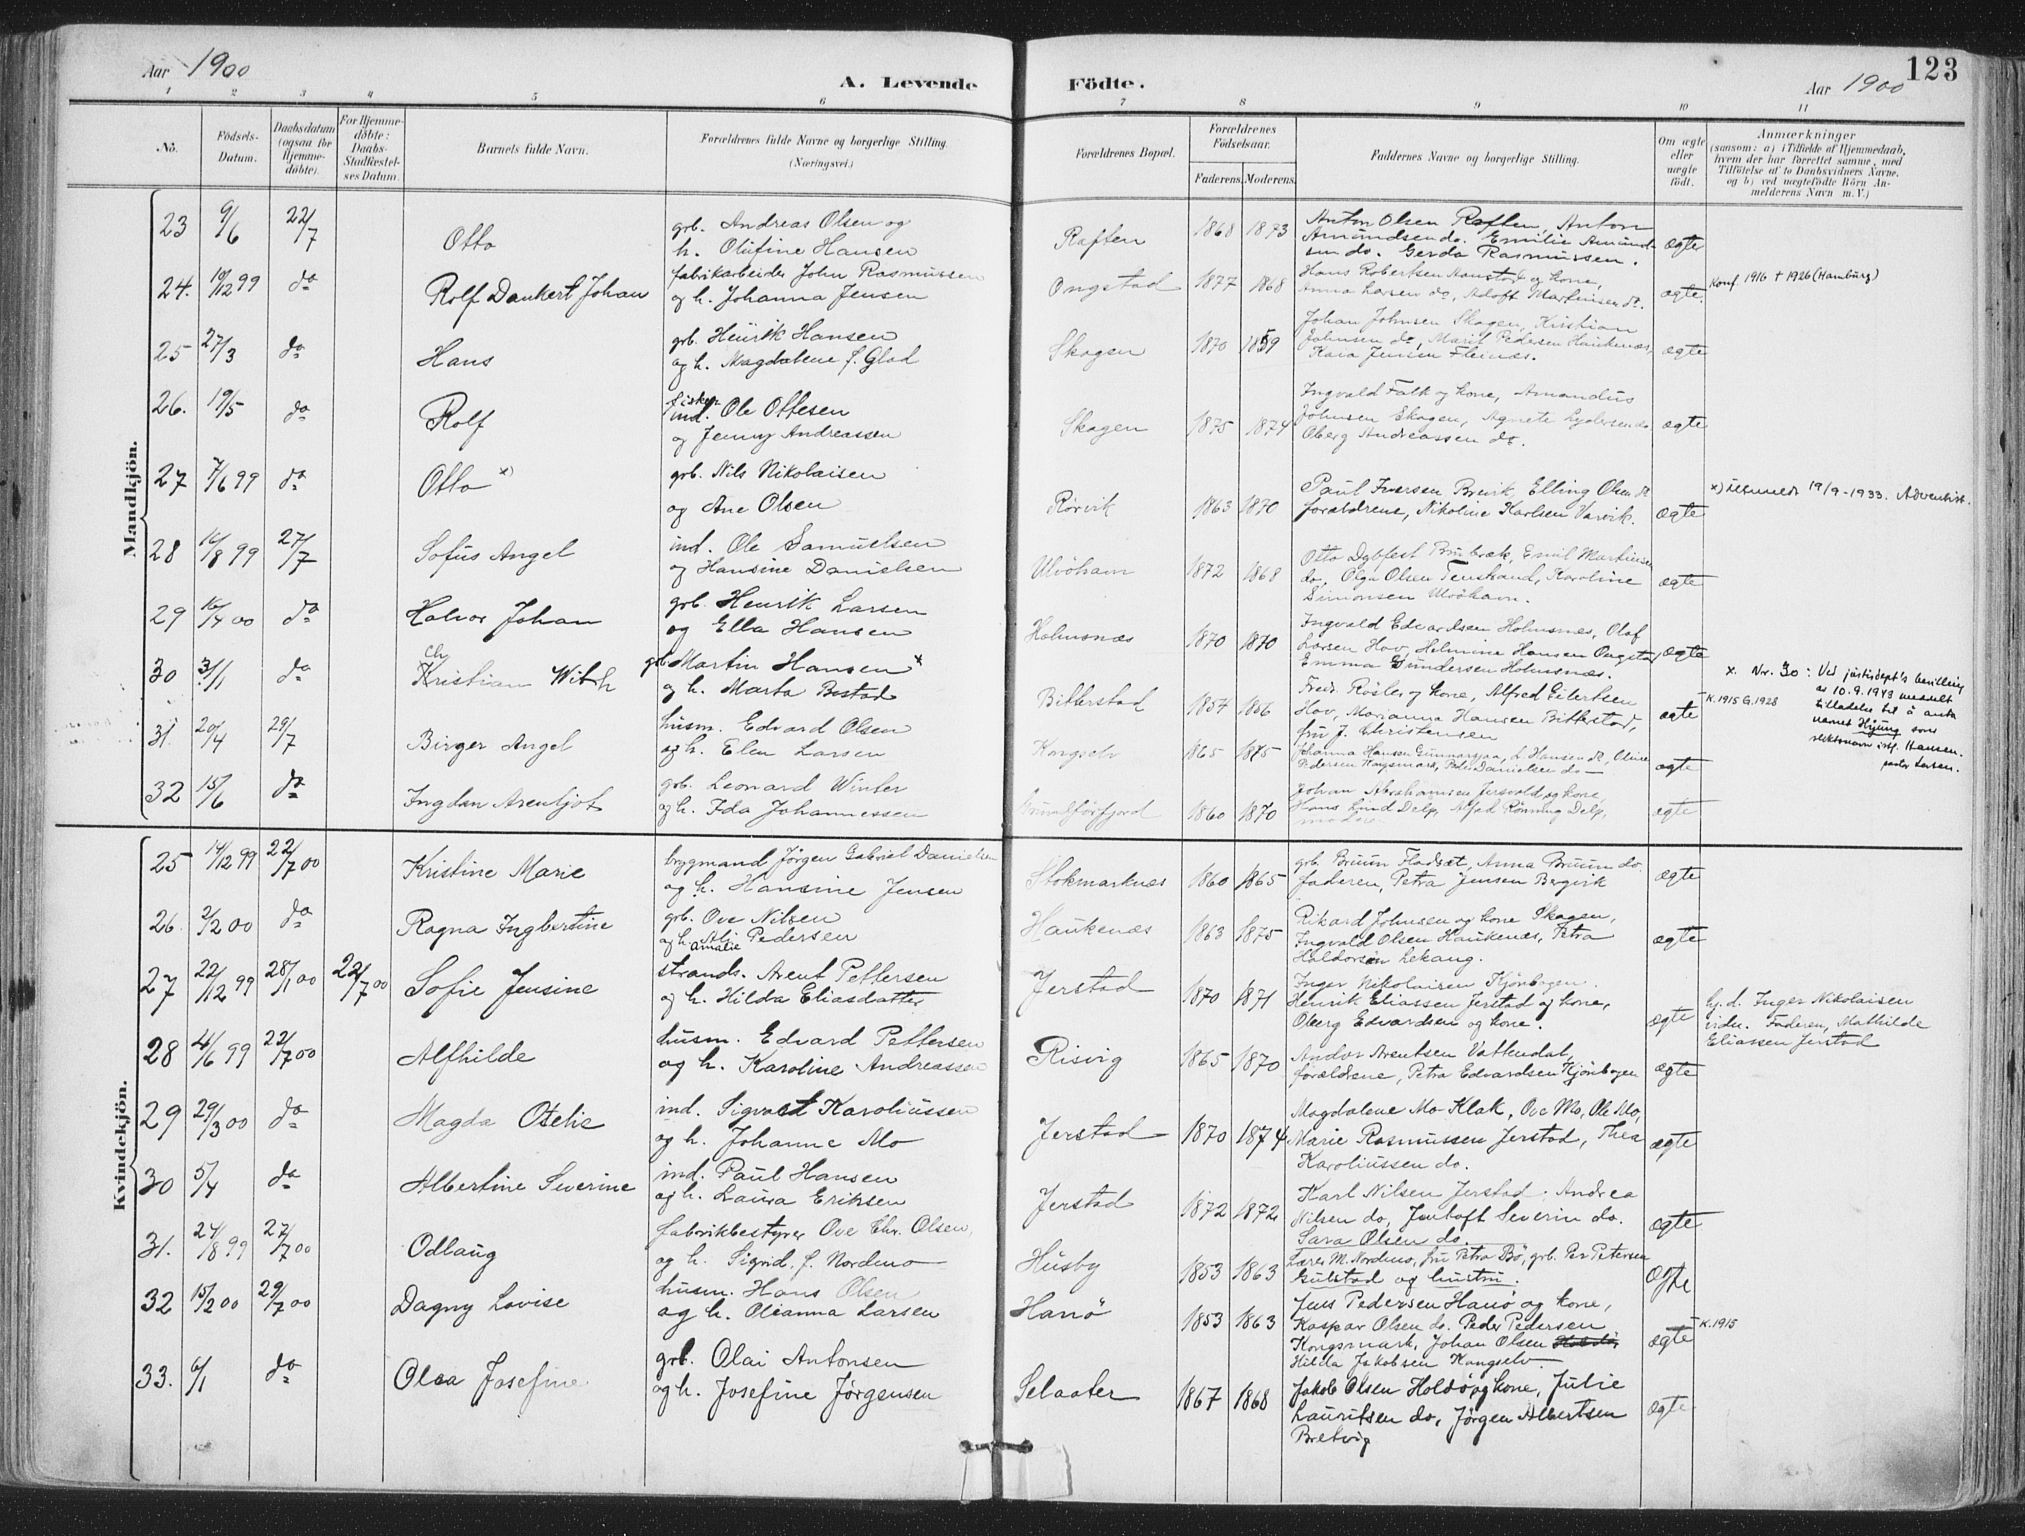 Aar 1900
A. Levende
Födte.
Aar 1900
123
1 2 3 4 5 6 7 8 9 10 11
No.
Födsels-
Datum.
Daabsdatum
(ogsaa for
Hjemme-
döbte).
For Hjemme-
döbte:
Daabs-
Stadfæstel-
ses Datum.
Barnets fulde Navn.
Forældrenes fulde Navne og borgerlige Stilling.
(Næringsvei.)
Forældrenes Bopæl.
Forældrenes
Födselsaar.
Faderens. Moderens.
Faddernes Navne og borgerlige Stilling.
Om ægte
eller
uægte
födt.
Anmærkninger
(saasom: a) i Tilfælde af Hjemmedaab,
hvem der har forrettet samme, med
Tilföielse af to Daabsvidners Navne.
og b) ved uægtefödte Börn An-
melderens Navn m. V.)
Mandkjön.
23 9/6 22/7 Otto
grb. Andreas Olsen og
h. Olufine Hansen
Raften 1868 1873
Anton Olsen Raften, Antorn
Amundsen do. Emilie Amund-
sen do. Gerda Rasmussen.
ægte
24. 10/12 99 do Rolf Dankert Johan
fabrikarbeider John Rasmussen
og h. Johanna Jensen
Ongstad 1877 1868
Hans Robertsen Aanstad og kone,
Anna Larsen do, Adolf Martinsen do.
ægte.
Konf. 1916 † 1926 (Hamburg)
25 27/3 do Hans
grb. Henrik Hansen
og h. Magdalene f. Glad
Skagen 1870 1859
Johan Johnsen Skagen, Kristian
Johnsen do, Marit Pedersen Haukenæs,
Kaia Jensen Fleinæs.
ægte
26. 19/5 do Rolf
fisker
ind. Ole Ottesen
og Jenny Andreassen
Skagen 1875 1874
Ingvald Falk og kone, Amandus
Johnsen Skagen, Agnete Lydersen do
Oberg Andreassen do.
ægte
27 7/6 99 do Otto x)
grb. Nils Nikolaisen
og Ane Olsen
Rörvik 1863 1870
Paul Iversen Breivik, Elling Olsen do
forældrene, Nikoline Karlsen Varvik.
ægte
x) Utmeldt 19/9-1933. Adventist.
28 16/8 99 27/7 Sofus Angel
ind. Ole Samuelsen
og Hansine Danielsen
Ulvöhavn 1872 1868
Otto Dybfest Brubræk, Emil Martinsen
do, Olga Olsen Tenstrand, Karoline
Simonsen Ulvöhavn.
ægte
29 16/4 00 do Halvor Johan
grb. Henrik Larsen
og Ella Hansen
Holmsnæs 1870 1870
Ingvald Edvardsen Holmsnæs, Olaf
Larsen Hov, Helmine Hansen Ongstad,
Emma Gundersen Holmsnæs.
ægte
30 31/1 do Ch
Kristian With
grb. Martin Hansen x
og h. Marta Bestad
Bitterstad 1854 1856
Fredr. Rösler og kone, Alfred Eilertsen
Hov, Marianna Hansen Bitterstad,
fru J. Christensen
ægte
K. 1915 G. 1928
x Nr. 30: Ved justisdept's bevilling
av 10.9.1943 meddelt
tilladelse til å anta
navnet Hjung som
slektsnavn istf. Hansen.
pastor Larsen.
31. 20/4 29/7 Birger Angel
husm. Edvard Olsen
og h. Elen Larsen
Kongselv 1865 1875
Johanna Hansen Gunnarsjaa, L. Hansen do, Oline
Pedersen Kongsmark, Peder Danielsen do
ægte
32 15/6 do Ingdan Arentjot
grb. Leonard Winter
og h. Ida Johannessen
Grundförfjord 1860 1870
Johan Abrahamsen Jersvold og kone,
Hans Lind Delp, Alfred Rönning Delp,
moderen
ægte
Kvindekjön.
25 14/12 99 22/7 00 Kristine Marie
brygmand Jörgen Gabriel Danielsen
og h. Hansine Jensen
Stokmarknæs 1860 1865
grb. Bruun Fladsæt, Anna Bruun do.
faderen, Petra Jensen Bergvik
ægte
26. 2/2 00 do Ragna Ingbertine
grb. Ove Nilsen
og h. Amalie Pedersen
Haukenæs 1863 1875
Rikard Johnsen og kone Skagen,
Ingvald Olsen Haukenæs, Petra
Haldorsen Lekang.
ægte
27 22/12 99 28/1 00 22/7 00 Sofie Jensine
strands. Arent Pettersen
og h. Hilda Eliasdatter
Jerstad 1870 1871
Inger Nikolaisen Kjönbogen.
Henrik Eliassen Jerstad og kone,
Oberg Edvardsen og kone.
ægte
hj. d. Inger Nikolaisen
vidn. Faderen, Mathilde
Eliassen Jerstad
28 4/6 99 22/7 00 Alfhilde
husm. Edvard Pettersen
og h. Karoline Andreassen
Risvig 1865 1870
Andor Arentsen Vattendal,
forældrene, Petra Edvardsen Kjönbogen
ægte
29 29/3 00 do Magda Otelie
ind. Sigvart Karoliussen
og h. Johanne Mo
Jerstad 1870 1874
Magdalene Mo Klak, Ove Mo, Ole Mo,
Marie Rasmussen Jerstad, Thea
Karoliussen do.
ægte
30 5/4 do Albertine Severine
ind. Paul Hansen
og h. Laura Eriksen
Jerstad 1872 1872
Karl Nilsen Jerstad. Andrea
Nilsen do, Jentoft Severin do.
Sara Olsen do.
ægte
31. 24/8 99 27/7 00 Odlaug
fabrikbestyrer Ove Chr. Olsen,
og h. Sigrid f. Nordmo
Husby 1853 1863
Lærer M. Nordmo, fru Petra Bö, grb. Per Petersen
Gulstad og hustru.
ægte
32 15/2 00 29/7 00 Dagny Lovise
husm. Hans Olsen
og h. Oleanna Larsen
Hanö 1853 1863
Jens Pedersen Hanö og kone,
Kaspar Olsen do. Peder Pedersen
Kongsmark, Johan Olsen
Hilda Jakobsen Kongselv
ægte
K. 1915
33. 6/1 do Olea Josefine
grb. Olai Antonsen
og h. Josefine Jörgensen
Selaater 1867 1868
Jakob Olsen Holdö og kone, Julie
Lauritsen do, Jörgen Albertsen
Bretvig
ægte